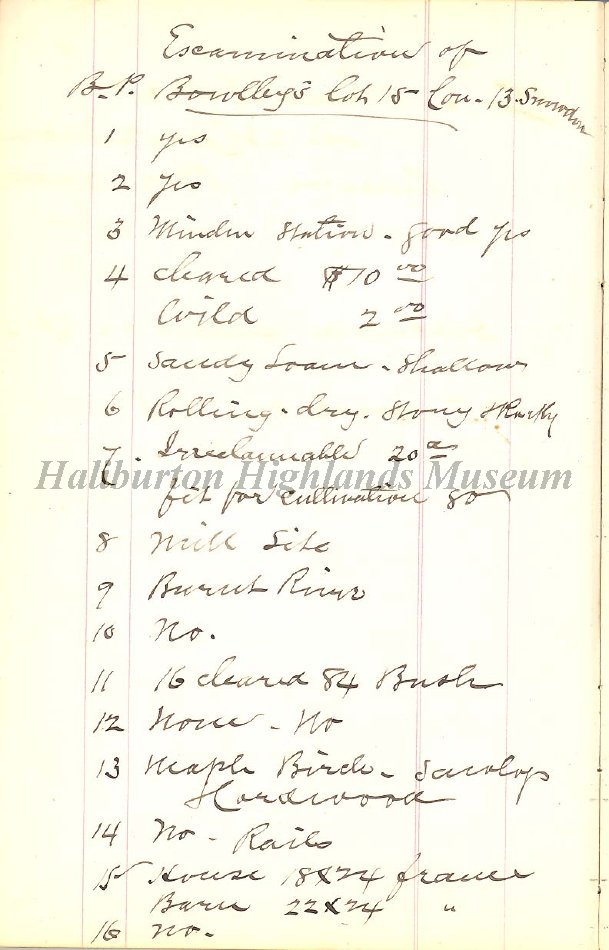 Examination of
B.P. Bowlley's Lot 15 Con. 13. Snowdon
1 yes
2 yes
3 Minden Station - good yes
4 cleared $10 00
Wild 2 00
5 Sandy Loam - Shallow
6 Rolling - dry. Stony & Rocky
7. Irreclaimable 20 as
Haliburton Highlands Museum
fit for cultivation 80
8 Mill Site
9 Burnt River
10 No.
11 16 cleared 84 Bush
12 None - No
13 Maple Birch -
Hardwood
14 No - Rails
15 House 18x24 frame
Barn 22x24 "
16 No.